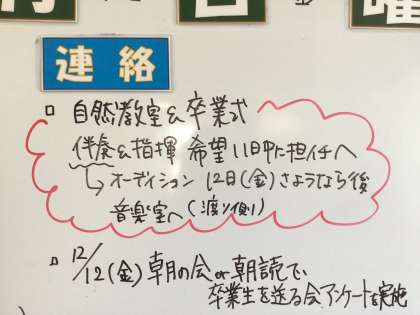 月 日 曜
連絡
自然教室&卒業式
伴奏&指揮 希望11日中に担任へ
オーディション 12日(金)さようなら後
音楽室へ(渡り側)
12/12(金)朝の会or朝読で、
卒業生を送る会アンケートを実施